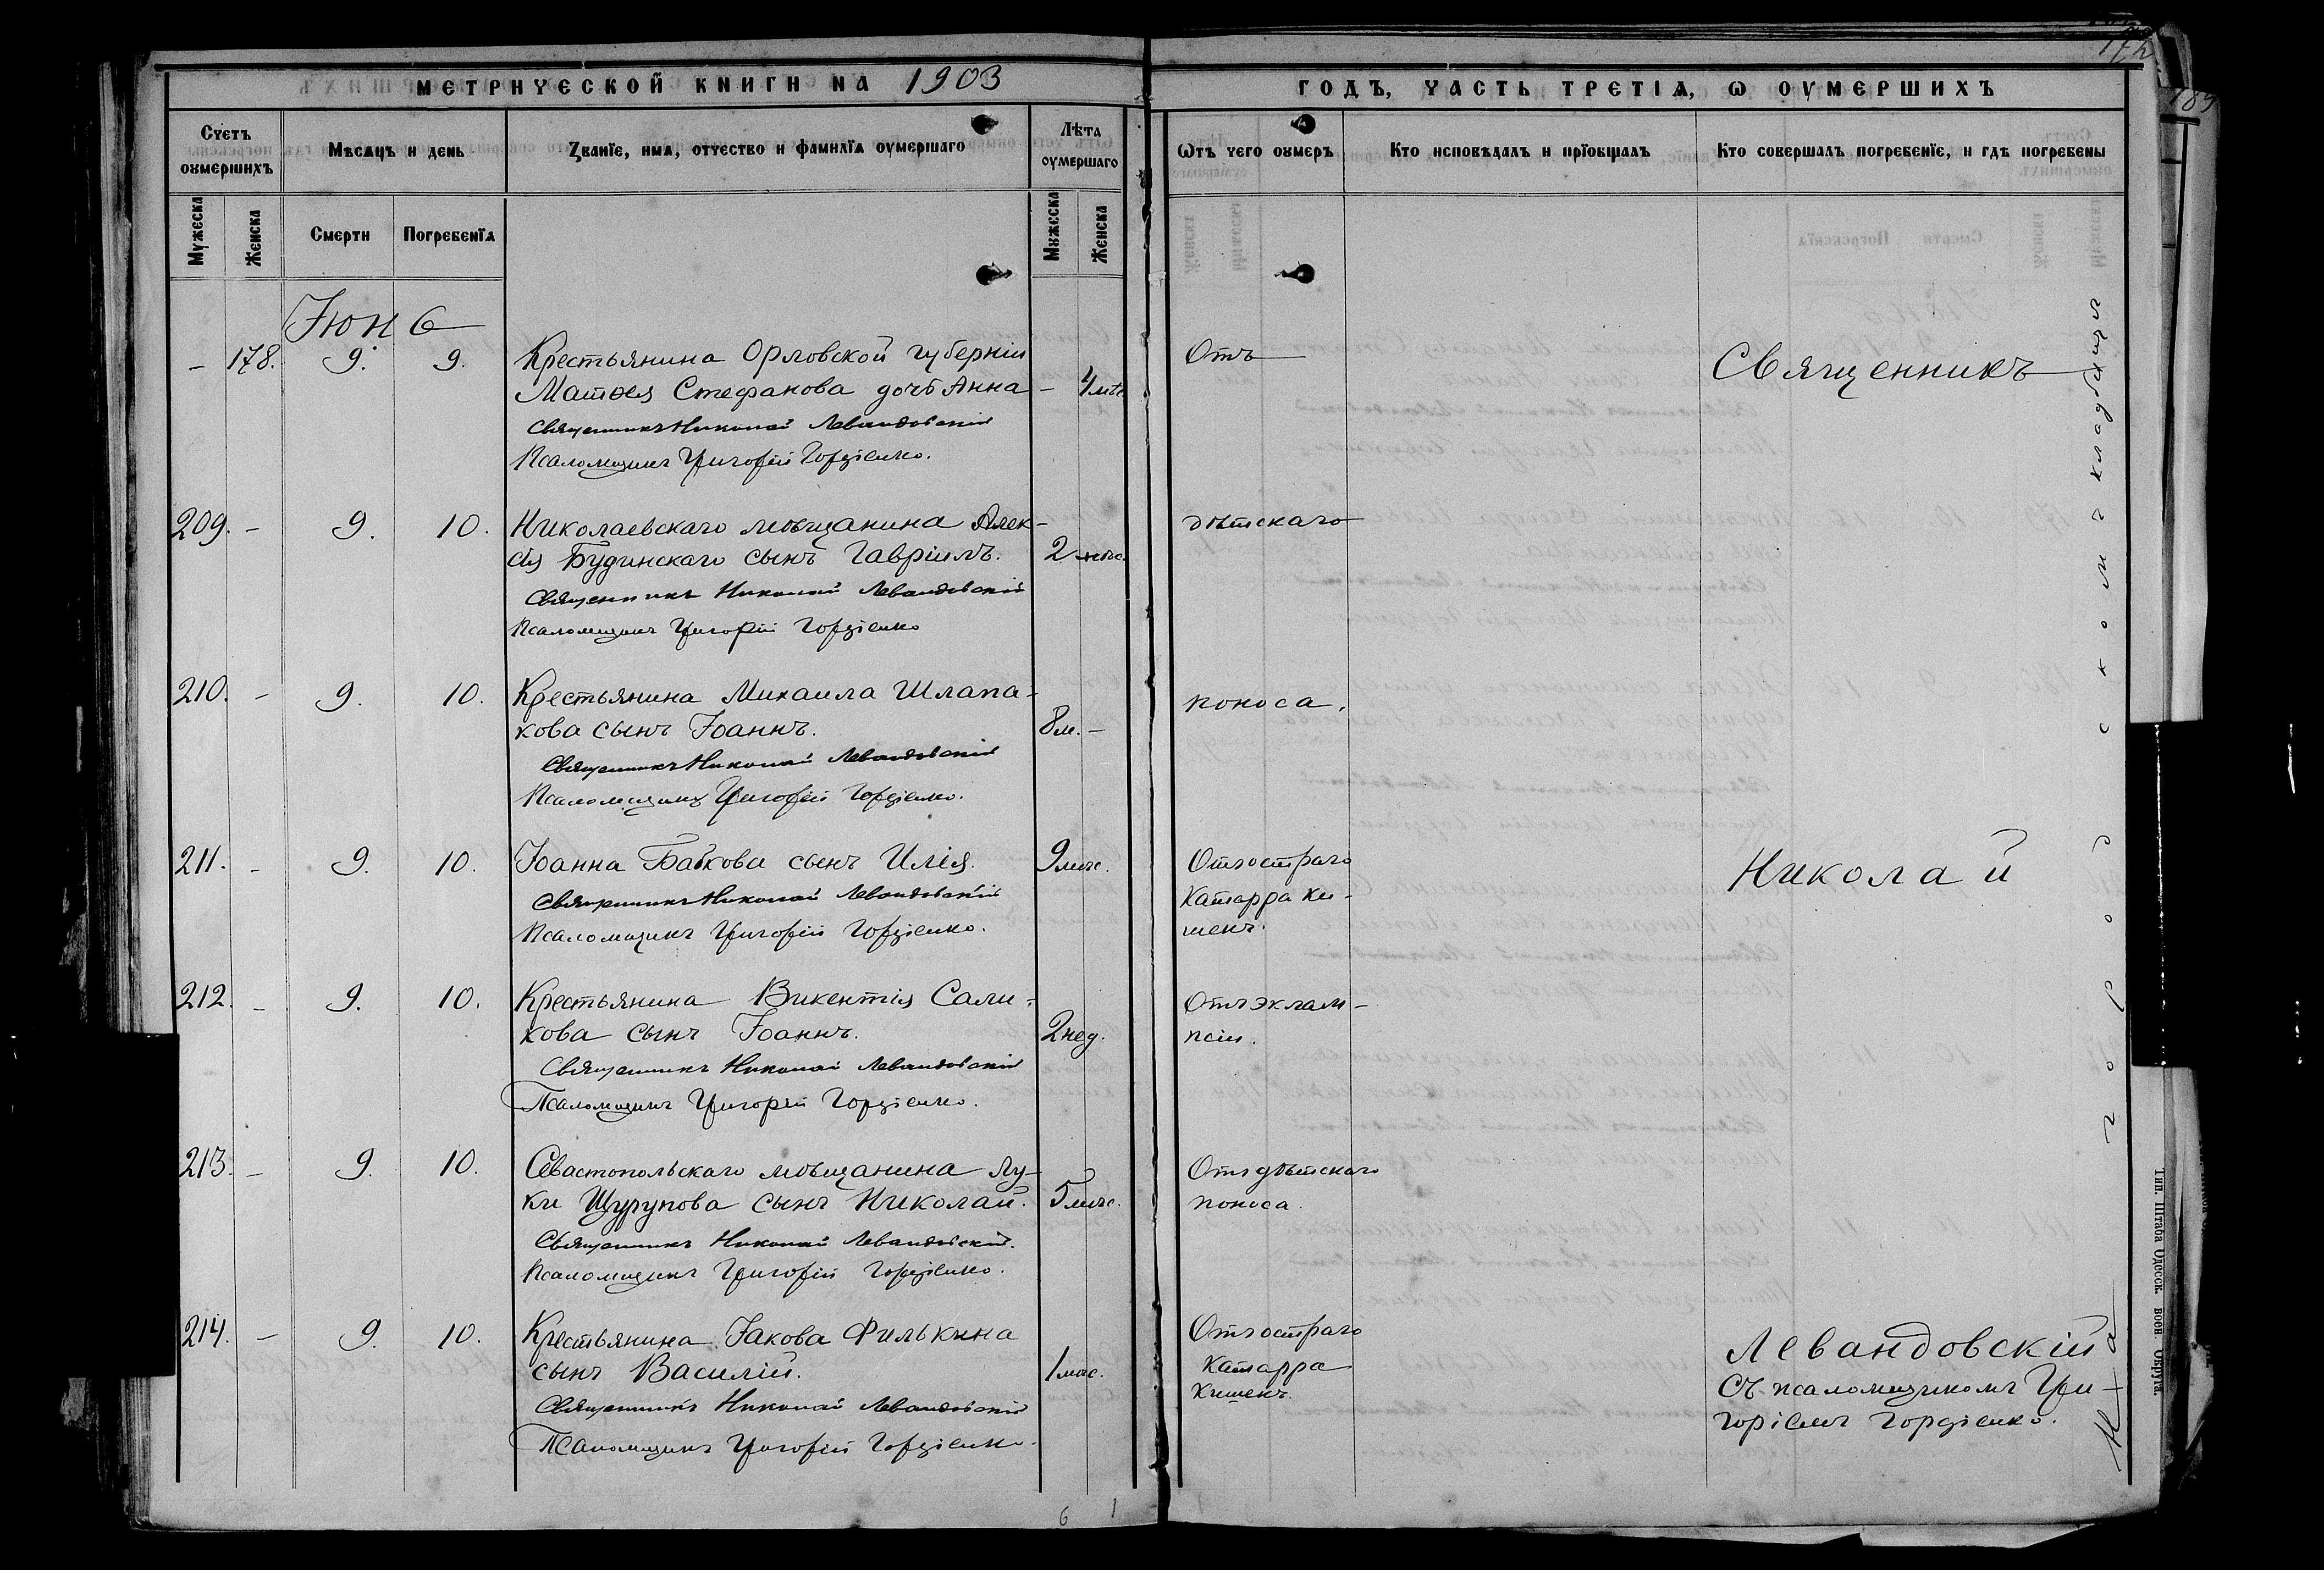 МЕТРИЧЕСКОЙ КНИГИ НА 1903
Счетъ умершихъ
Мѣсяцъ и день
Званіе, имя, отчество и фамилія умершаго
Лѣта умершаго
Мужеска
Женска
Смерти
Погребенія
Мужеска
Женска
Іюнь
– 178. 9. 9. Крестьянина Орловской губерніи
Матѳея Стефанова дочь Анна – 4 мѣс.
Священникъ Николай Левандовскій
Псаломщикъ Григорій Гордіенко.
209. – 9. 10. Николаевскаго мѣщанина Алек-
сія Будинскаго сынъ Гавріилъ. 2 мѣс.
Священникъ Николай Левандовскій
Псаломщикъ Григорій Гордіенко
210. – 9. 10. Крестьянина Михаила Шлапа-
кова сынъ Іоаннъ. 8 м. –
Священникъ Николай Левандовскій
Псаломщикъ Григорій Гордіенко.
211. – 9. 10. Іоанна сынъ Илія. 9 мѣс.
Священникъ Николай Левандовскій
Псаломщикъ Григорій Гордіенко.
212. – 9. 10. Крестьянина Викентія Сали-
кова сынъ Іоаннъ. 2 нед.
Священникъ Николай Левандовскій
Псаломщикъ Григорій Гордіенко.
213. – 9. 10. Севастопольскаго мѣщанина Лу-
ки Щурупова сынъ Николай. 5 мѣс.
Священникъ Николай Левандовскій.
Псаломщикъ Григорій Гордіенко.
214. – 9. 10. Крестьянина Іакова Филькина
сынъ Василій. 1 мѣс.
Священникъ Николай Левандовскій
Псаломщикъ Григорій Гордіенко.
6 1
ГОДЪ, ЧАСТЬ ТРЕТІЯ, Ѡ УМЕРШИХЪ
Ѿтъ чего умеръ
Кто исповѣдалъ и пріобщалъ
Кто совершалъ погребеніе, и гдѣ погребены
Отъ
дѣтскаго
поноса.
Отъ остраго
катарра ки-
шекъ.
Отъ эклам-
псіи.
Отъ дѣтскаго
поноса.
Отъ остраго
катарра
кишекъ.
Священникъ
Николай
Левандовскій
съ псаломщикомъ Гри-
горіемъ Гордіенко.
На городскомъ кладбищѣ
Тип. Штаба Одесск. воен. Округа.
189